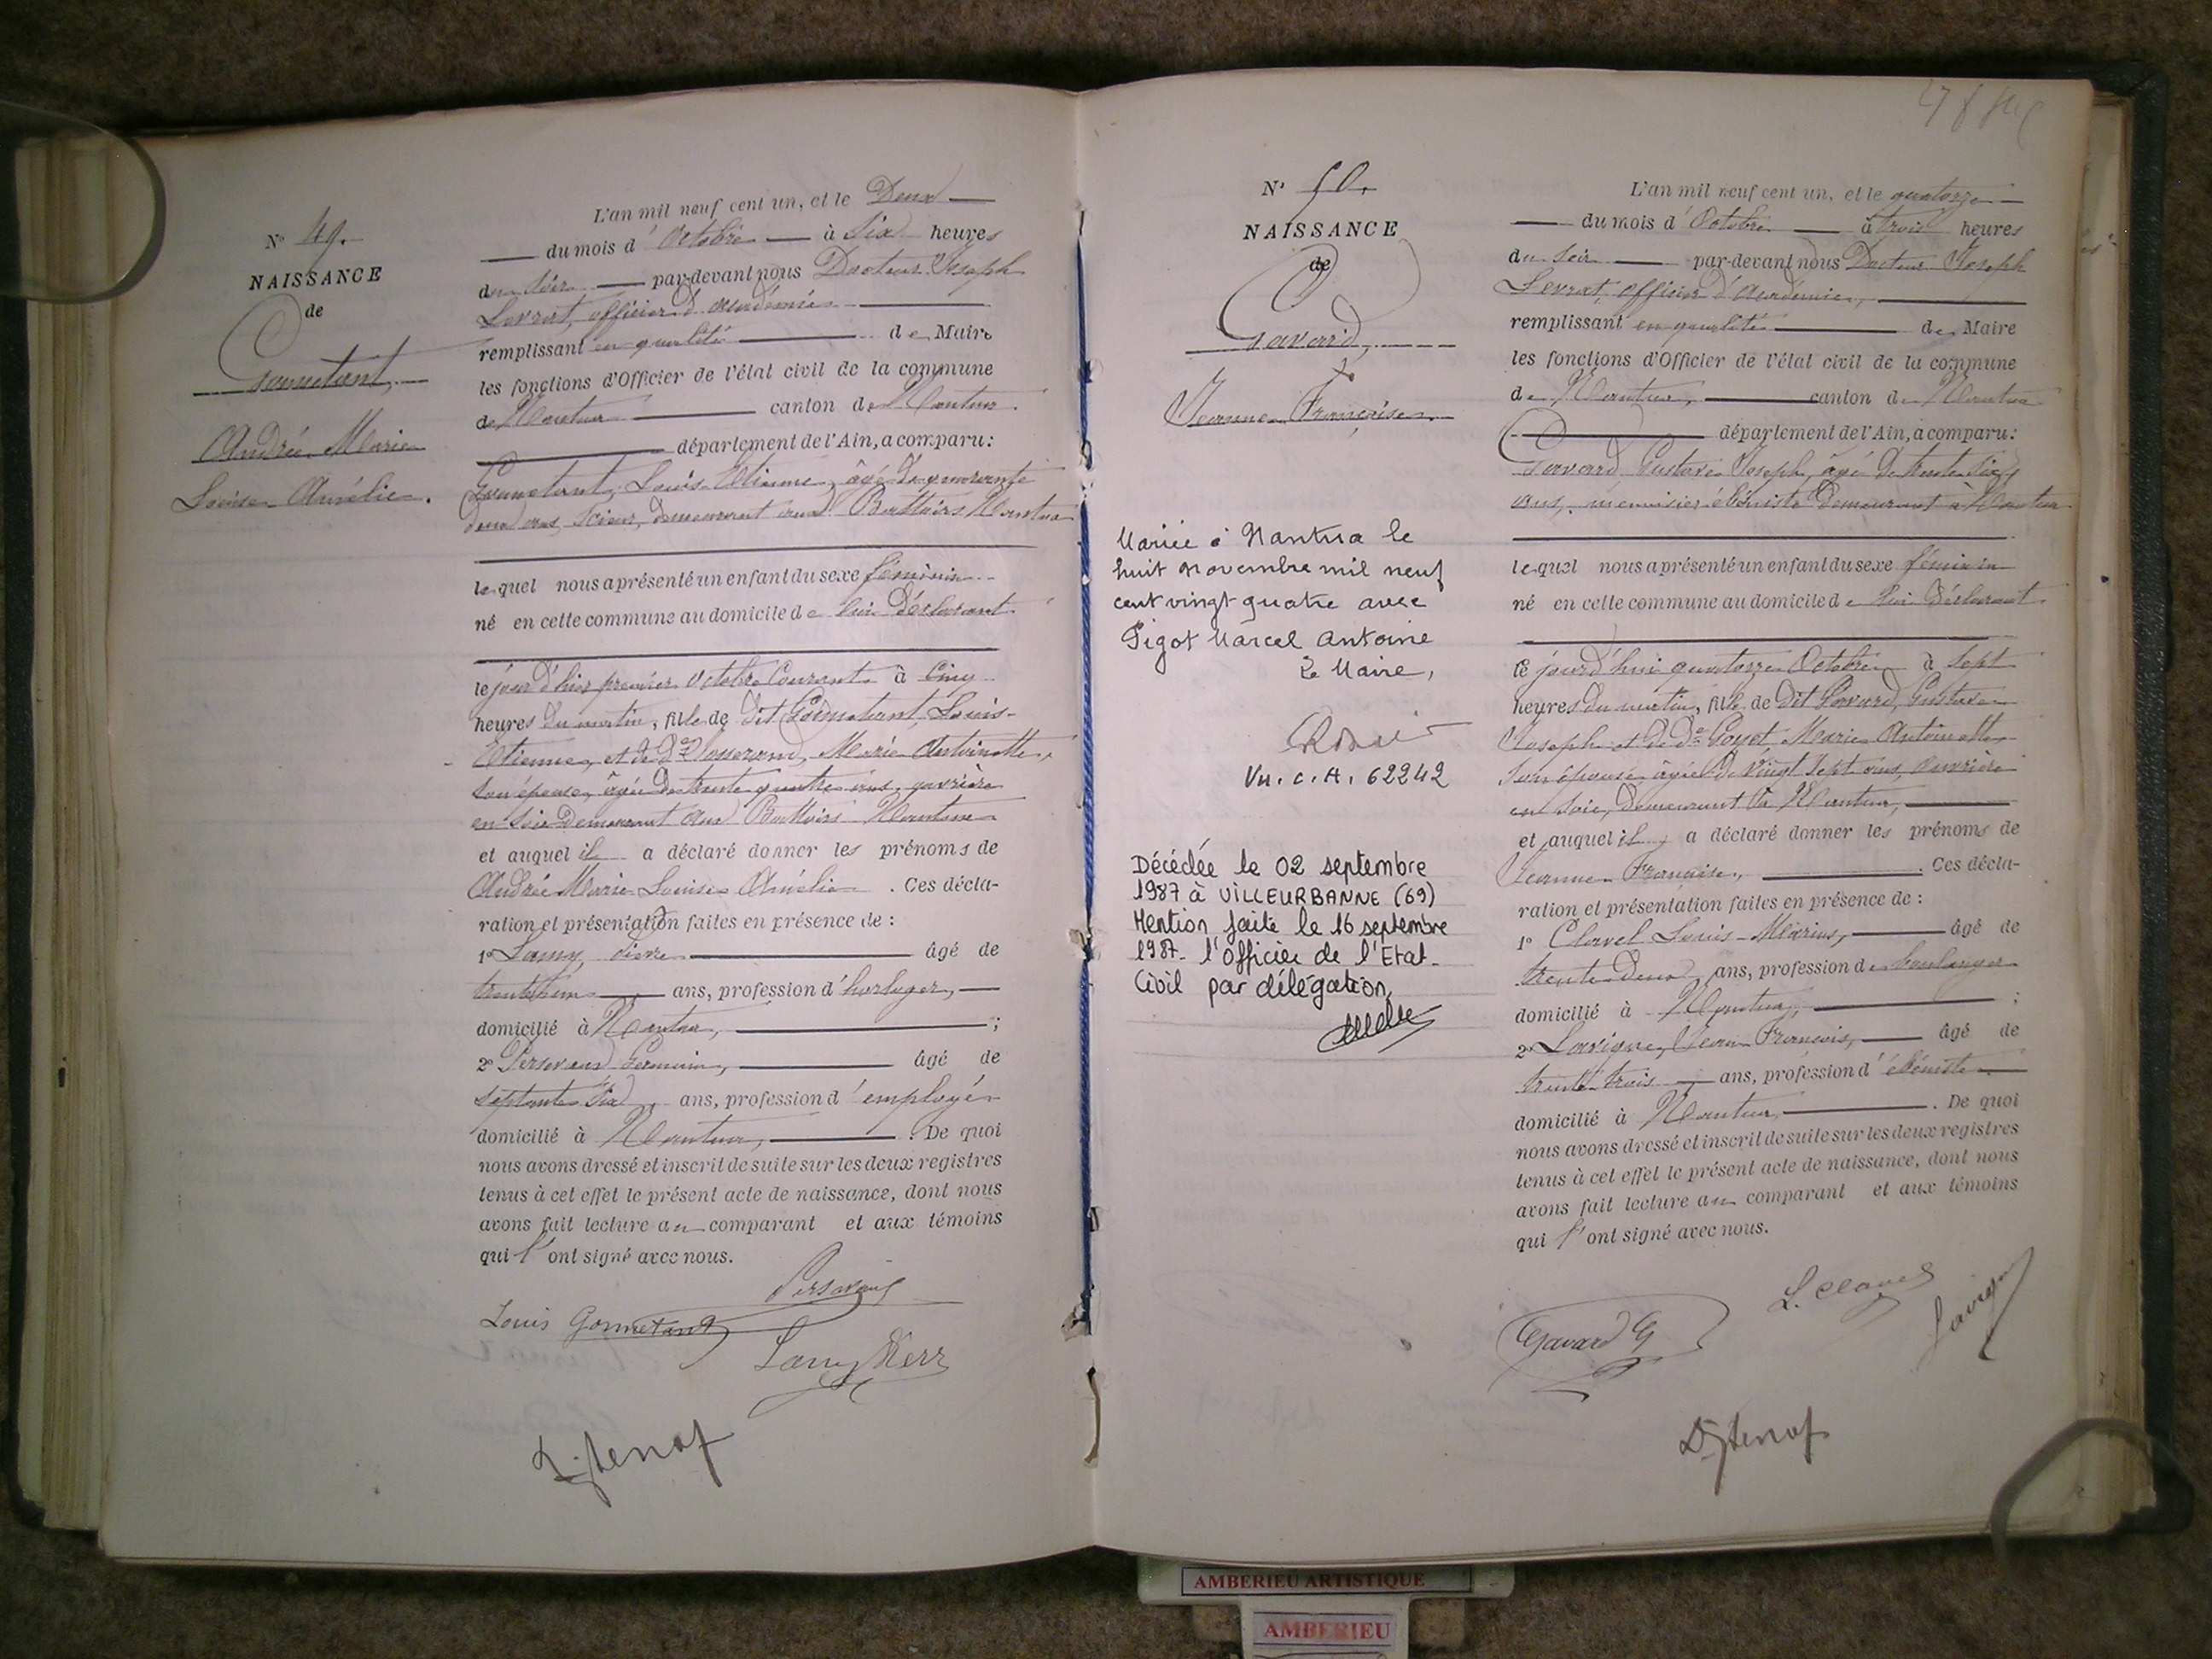 N° 49.
NAISSANCE
de
Gonnetant,
Andrée Marie
Louise Amélie.
L'an mil neuf cent un, et le Deux
du mois d'Octobre à Six heures
du Soir par-devant nous Docteur Joseph
Levrat, officier d'académie
remplissant en qualité de Maire
les fonctions d'Officier de l'état civil de la commune
de Nantua canton de Nantua
département de l'Ain, a comparu:
Gonnetant, Louis Etienne, âgé de quarante
deux ans, Scieur, demeurant aux Battoirs Nantua
lequel nous a présenté un enfant du sexe féminin
né en cette commune au domicile de lui déclarant
le jour d'hier premier Octobre Courant à Cinq
heures du matin, fille de dit Gonnetant, Louis-
Etienne, et de De Marie Antoinette,
son épouse, âgée de trente quatre ans, ouvrière
en soie demeurant aux Battoirs Nantua
et auquel il a déclaré donner les prénoms de
Andrée Marie Louise Amélie . Ces décla-
ration et présentation faites en présence de :
1° Lamy, âgé de
ans, profession d'horloger,
domicilié à Nantua, ;
2° Persavaud Germain, âgé de
septante six ans, profession d'employé
domicilié à Nantua, . De quoi
nous avons dressé et inscrit de suite sur les deux registres
tenus à cet effet le présent acte de naissance, dont nous
avons fait lecture au comparant et aux témoins
qui l'ont signé avec nous.
Louis Gonnetant
N° 50.
NAISSANCE
de
Gavard,
Jeanne Françoise.
Mariée à Nantua le
huit novembre mil neuf
cent vingt quatre avec
Pigot Marcel Antoine
Le Maire,
Vu. C.A. 62242
Décédée le 02 septembre
1987 à VILLEURBANNE (69)
Mention faite le 16 septembre
1987. l'Officier de l'Etat-
Civil par délégation,
L'an mil neuf cent un, et le quatorze
du mois d'Octobre à trois heures
du soir par-devant nous Docteur Joseph
Levrat, officier d'Académie,
remplissant en qualité de Maire
les fonctions d'Officier de l'état civil de la commune
de Nantua, canton de Nantua
département de l'Ain, a comparu:
Gavard, Gustave Joseph, âgé de trente six
ans, menuisier ébéniste demeurant à Nantua
lequel nous a présenté un enfant du sexe féminin
né en cette commune au domicile de lui déclarant
ce jourd'hui quatorze Octobre à sept
heures du matin, fille de dit Gavard, Gustave
Joseph et de De Goyet, Marie Antoinette
son épouse âgée de vingt sept ans, ouvrière
en soie, demeurant à Nantua,
et auquel il a déclaré donner les prénoms de
Jeanne Françoise, . Ces décla-
ration et présentation faites en présence de :
1° Clavel Louis-Marius, âgé de
trente deux ans, profession de boulanger
domicilié à Nantua, ;
2° Lavigne, Jean François, âgé de
trente trois ans, profession d'ébéniste
domicilié à Nantua, . De quoi
nous avons dressé et inscrit de suite sur les deux registres
tenus à cet effet le présent acte de naissance, dont nous
avons fait lecture au comparant et aux témoins
qui l'ont signé avec nous.
L. Clavel
Gavard G
Lavigne
AMBERIEU ARTISTIQUE
AMBERIEU